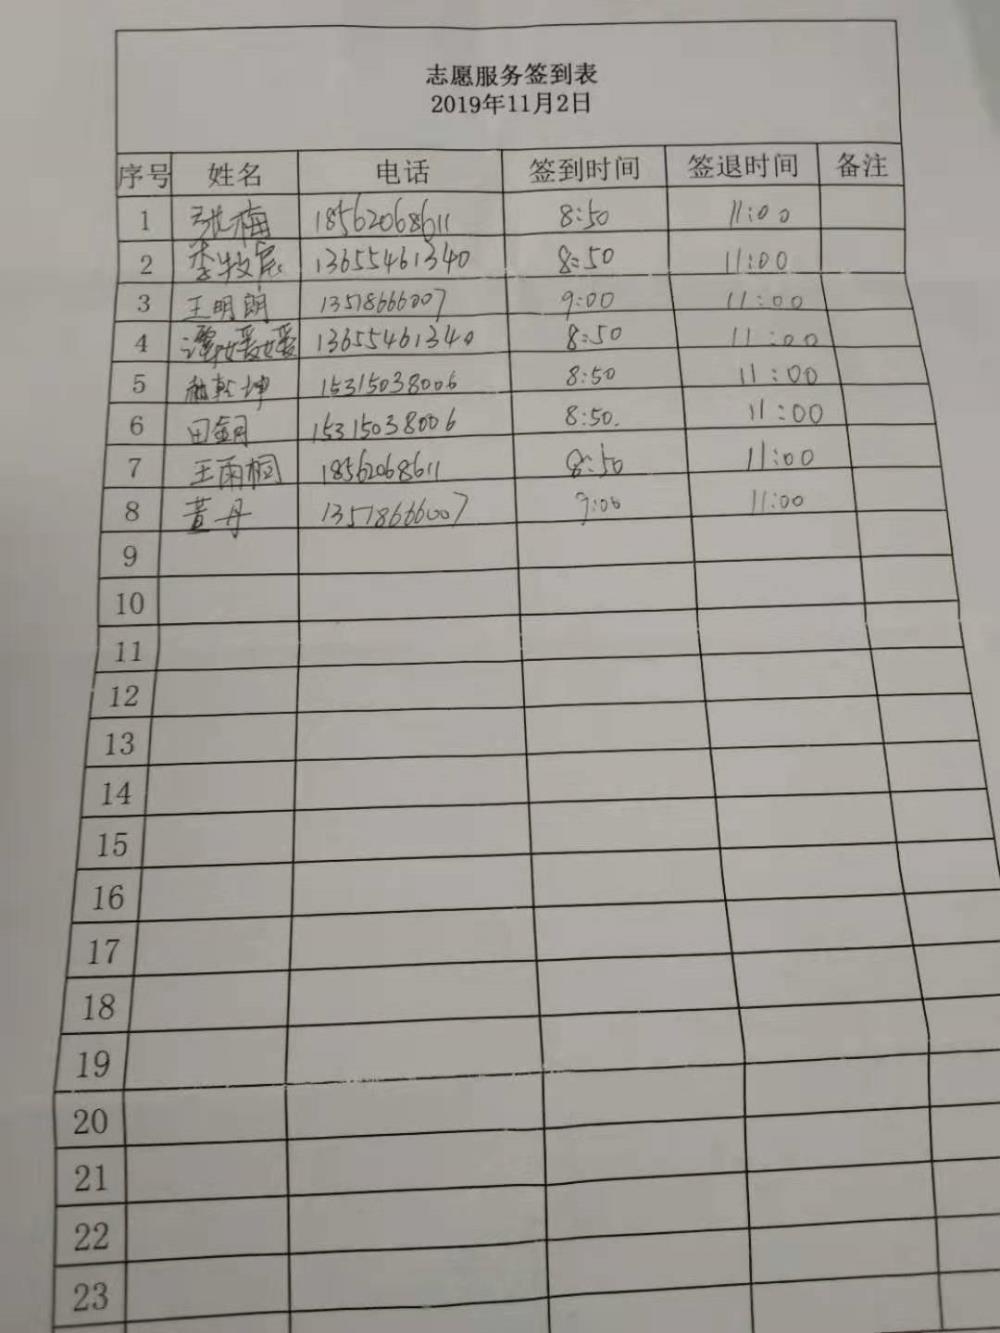 志愿服务签到表
2019年11月2日
序号 姓名 电话 签到时间 签退时间 备注
1 张梅 18562068611 8:50 11:00
2 李牧宸 13655461340 8:50 11:00
3 王明朗 13518666007 9:00 11:00
4 谭媛媛 13655461340 8:50 11:00
5 乾坤 15315038006 8:50 11:00
6 田 15315038006 8:50. 11:00
7 王雨桐 18562068611 8:50 11:00
8 董丹 13518666007 9:00 11:00
9
10
11
12
13
14
15
16
17
18
19
20
21
22
23